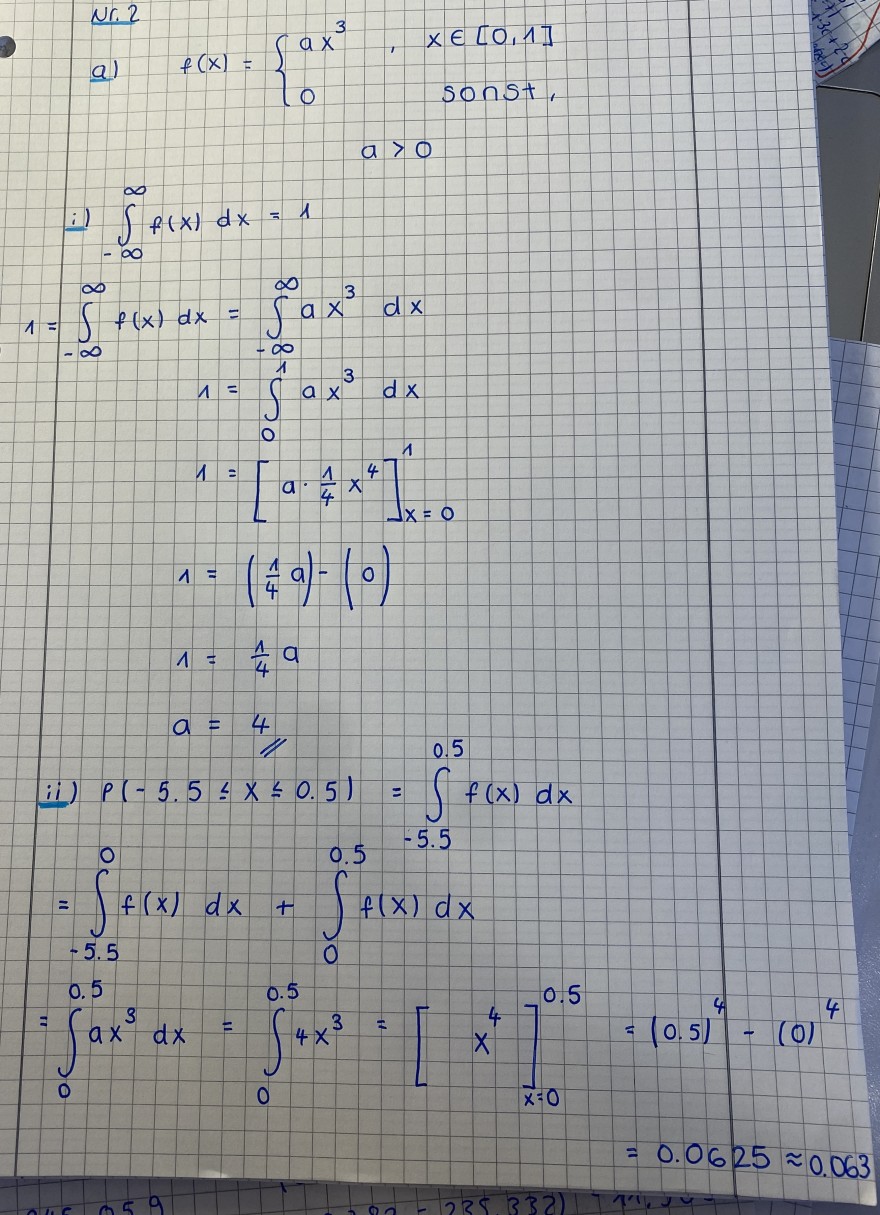 Nr. 2
a) f(x) = { ax³ , x ∈ [0,1]
0 sonst,
a > 0
i) ∫_{-∞}^{∞} f(x) dx = 1
1 = ∫_{-∞}^{∞} f(x) dx = ∫_{-∞}^{∞} ax³ dx
1 = ∫_{0}^{1} ax³ dx
1 = [a · 1/4 x⁴]_{x=0}^{1}
1 = (1/4 a) - (0)
1 = 1/4 a
a = 4
ii) P(-5.5 ≤ X ≤ 0.5) = ∫_{-5.5}^{0.5} f(x) dx
= ∫_{-5.5}^{0} f(x) dx + ∫_{0}^{0.5} f(x) dx
= ∫_{0}^{0.5} ax³ dx = ∫_{0}^{0.5} 4x³ = [x⁴]_{x=0}^{0.5} = (0.5)⁴ - (0)⁴
= 0.0625 ≈ 0.063